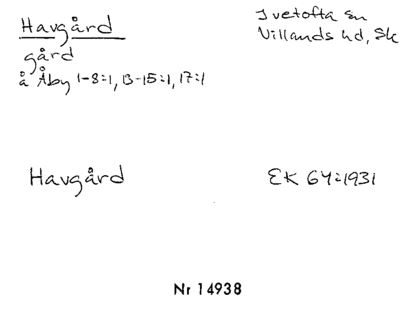 Havgård
gård
å Åby 1-8:1, 13-15:1, 17:1
Ivetofta sn
Villands hd, Sk
Havgård
EK 64:1931
Nr 14938